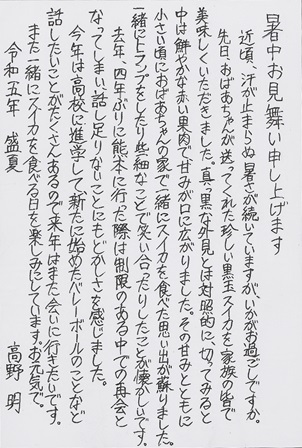 暑中お見舞い申し上げます
近頃、汗が止まらぬ暑さが続いていますが、いかがお過ごしですか。
先日、おばあちゃんが送ってくれた珍しい黒玉スイカを家族の皆で
美味しくいただきました。真っ黒な外見とは対照的に、切ってみると
中は鮮やかな赤い果肉で甘みが口に広がりました。その甘みとともに
小さい頃におばあちゃんの家で一緒にスイカを食べた思い出が蘇りました。
一緒にトランプをしたり些細なことで笑い合ったりしたことが懐かしいです。
去年、四年ぶりに熊本に行った際は制限のある中での再会と
なってしまい、話し足りないことにもどかしさを感じました。
今年は高校に進学して新たに始めたバレーボールのことなど
話したいことがたくさんあるので来年はまた会いに行きたいです。
また一緒にスイカを食べる日を楽しみにしています。お元気で。
令和五年 盛夏
高野 明